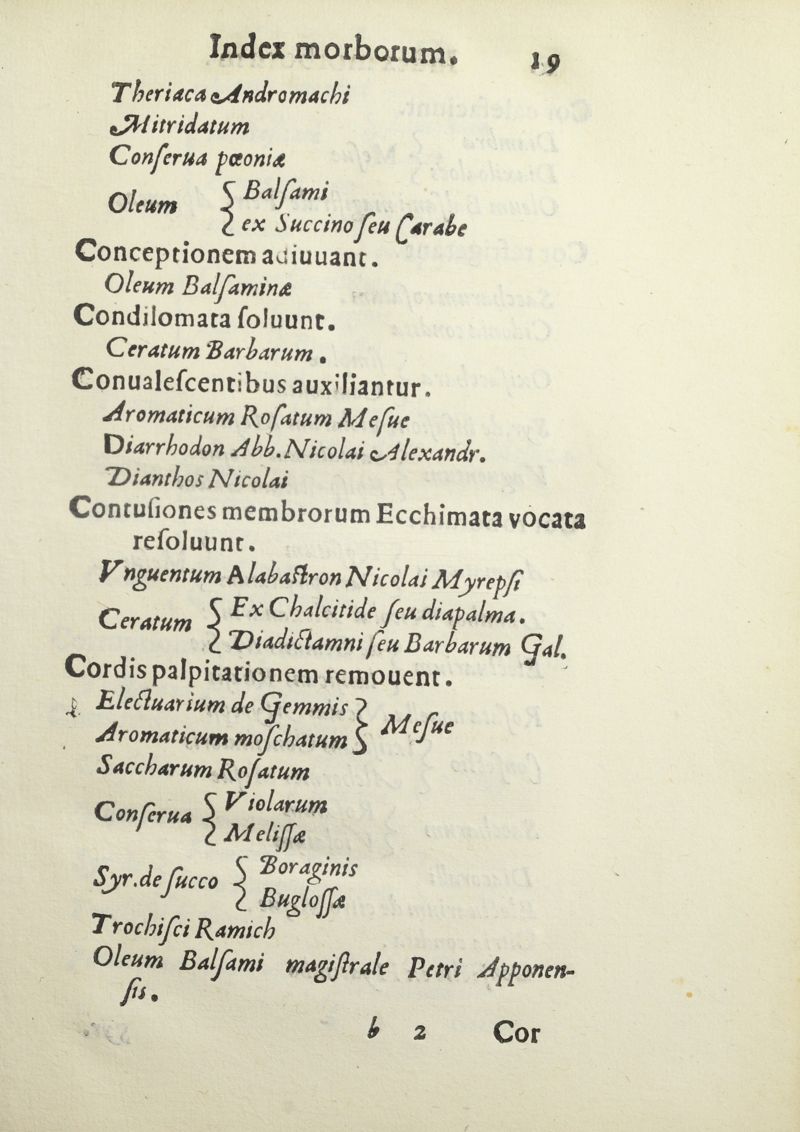 Index morborum. 19
Theriaca Andromachi
Mitridatum
Conſerua pœoniæ
Oleum { Balſami
ex Succino ſeu Carabe
Conceptionem adiuuant.
Oleum Balſaminæ
Condilomata ſoluunt.
Ceratum Barbarum.
Conualeſcentibus auxiliantur.
Aromaticum Roſatum Meſue
Diarrhodon Abb. Nicolai Alexandr.
Dianthos Nicolai
Contuſiones membrorum Ecchimata vocata
reſoluunt.
Vnguentum Alabaſtron Nicolai Myrepſi
Ceratum { Ex Chalcitide ſeu diapalma.
Diadictamni ſeu Barbarum Gal.
Cordis palpitationem remouent.
Electuarium de Gemmis } Meſue
Aromaticum moſchatum
Saccharum Roſatum
Conſerua { Violarum
Meliſſæ
Syr. de ſucco { Boraginis
Bugloſſæ
Trochiſci Ramich
Oleum Balſami magiſtrale Petri Apponen-
ſis.
b 2 Cor